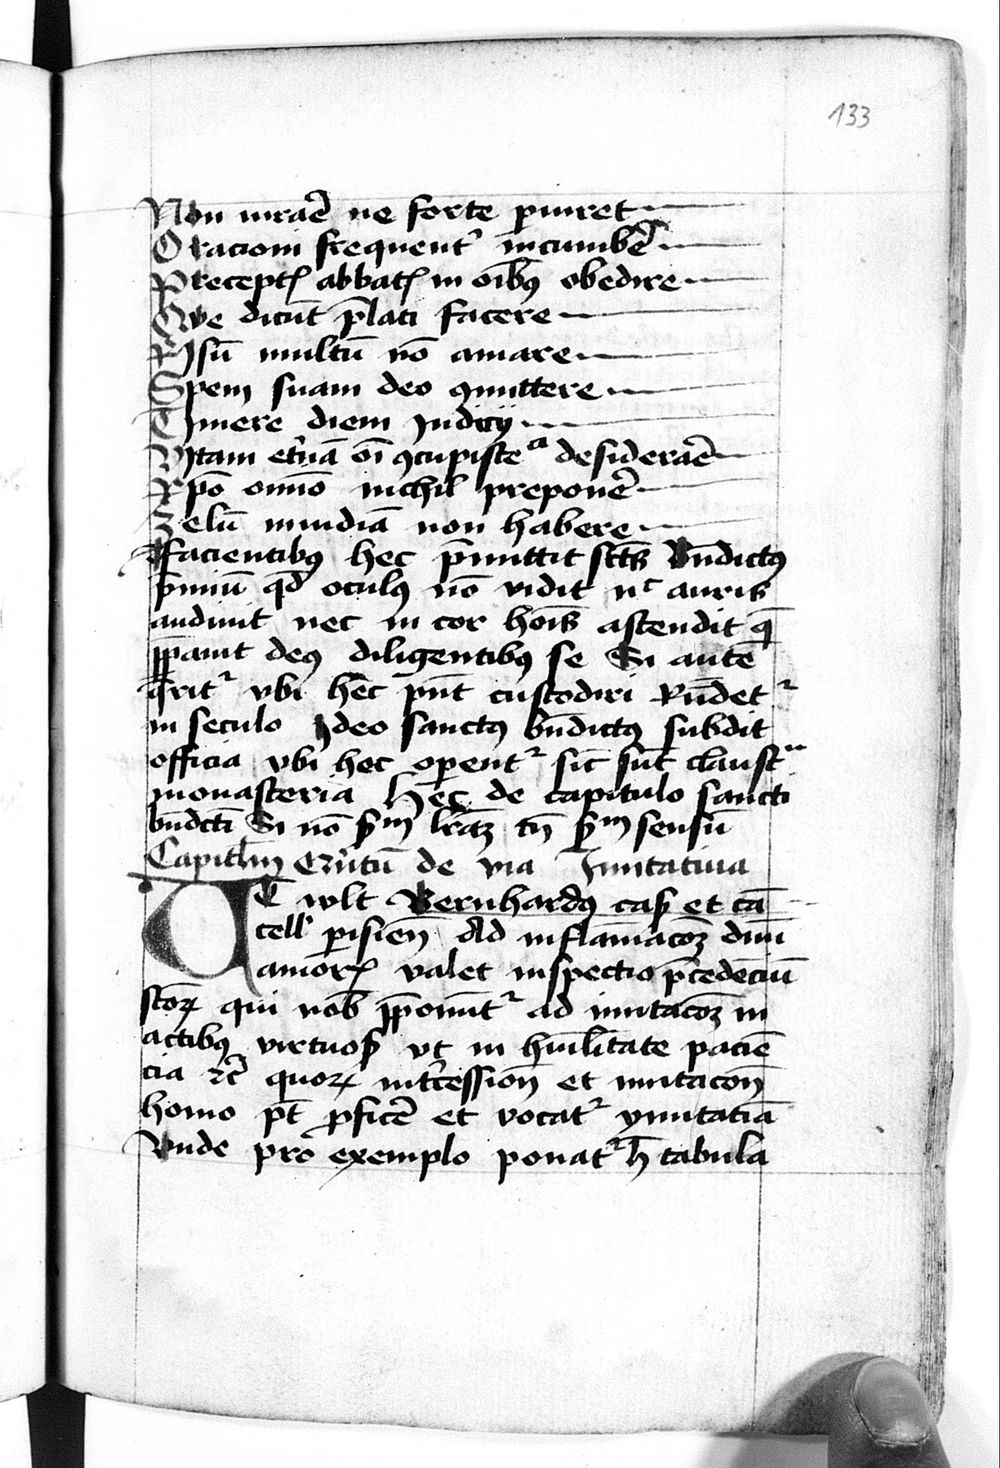 133
Non iurare ne forte p̲iuret
Oracioni frequentˀ incumbe᷑
Precept̲ꝭ abbatꝭ in oi̅bꝰ obedire
Que dicu̅t p̅lati facere
Risu̅ multu̅ no̅ amare
Spem suam deo ꝯmittere
Timere diem Judicij
Vitam et̾na̅ oi̅ ꝯcupiste᷒ᵃ desiderae᷑
Xp̅o om̅o nichil prepone᷑
Zelu̅ inuidia̅ non habere
ffacientibꝰ hec p̅mittit sct̅s Bn̅dictꝰ
p̅miu̅ qd̅ oculꝰ no̅ vidit nᶜ auris
audiuit nec in cor hoi̅s ascendit q̅
p̅p̲auit deꝰ diligentibꝰ se Si aute̅
q̅ritˀ vbi hec p̅nt custodiri Rn̅detˀ
in seculo Jdeo sanctꝰ bn̅dictꝰ subdit
officia vbi hec operentˀ sic su̅t claustᵃ
monasteria Hec de capitulo sancti
bn̅dcti Si no̅ sᵐ lr̅aꝫ tn̅ sᵐ sensu̅
Capitl̅m de via Jmitatiua
Ut wlt Bernhardꝰ cas̲ et ca̅
cell̾ p̲isien̅ Ad inflam̅aco̅ꝫ diui̅
amorꝭ valet inspectio p̅cede̅ciu̅
sco̅ꝝ qui nob̅ p̅ponu̅tˀ ad imitaco̅ꝫ in
actibꝰ virtuos̲ vt in hu̅ilitate pacie̅
cia ⁊c̅ quoꝝ int̾cession̅ et imitacon̅
homo p̅t p̲fice᷑ et vocatˀ ymitatia̅
Vnde pro exemplo ponatˀ h̅ tabula